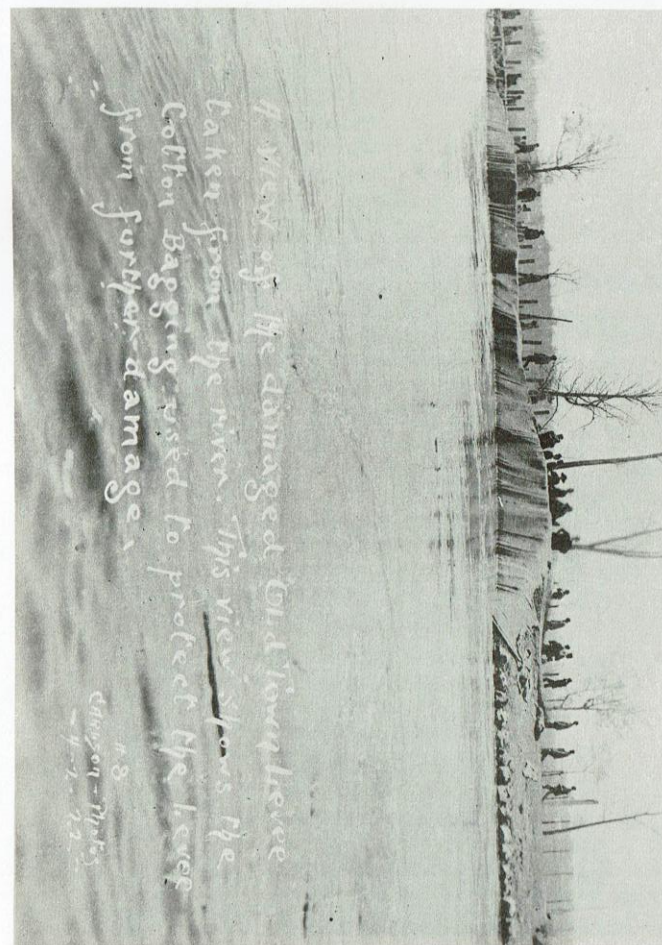 A view of the damaged Old Town levee
taken from the river. This view shows the
Cotton Bagging used to protect the levee
from further damage,
#8
-Photo